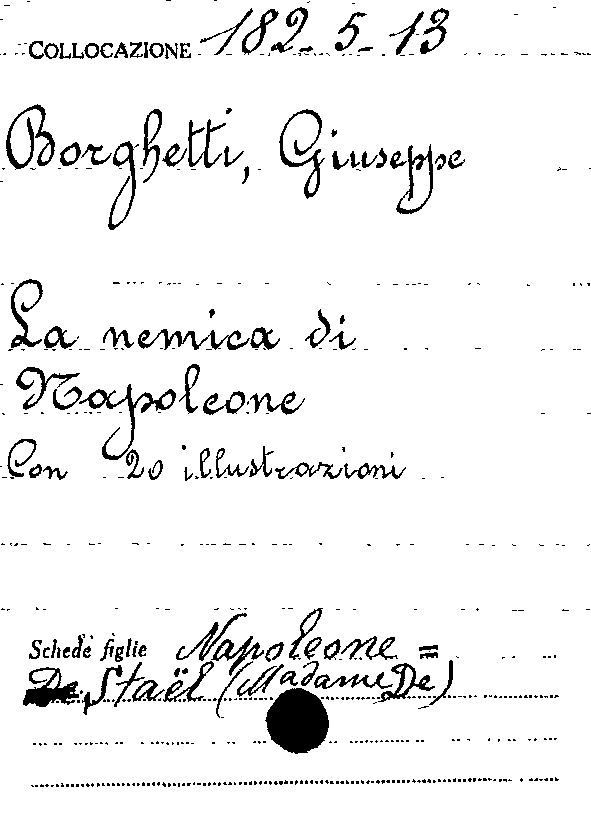 COLLOCAZIONE 182-5-13
Borghetti, Giuseppe
La nemica di
Napoleone
Con 20 illustrazioni
Schede figlie Napoleone =
Staël (Madame De)